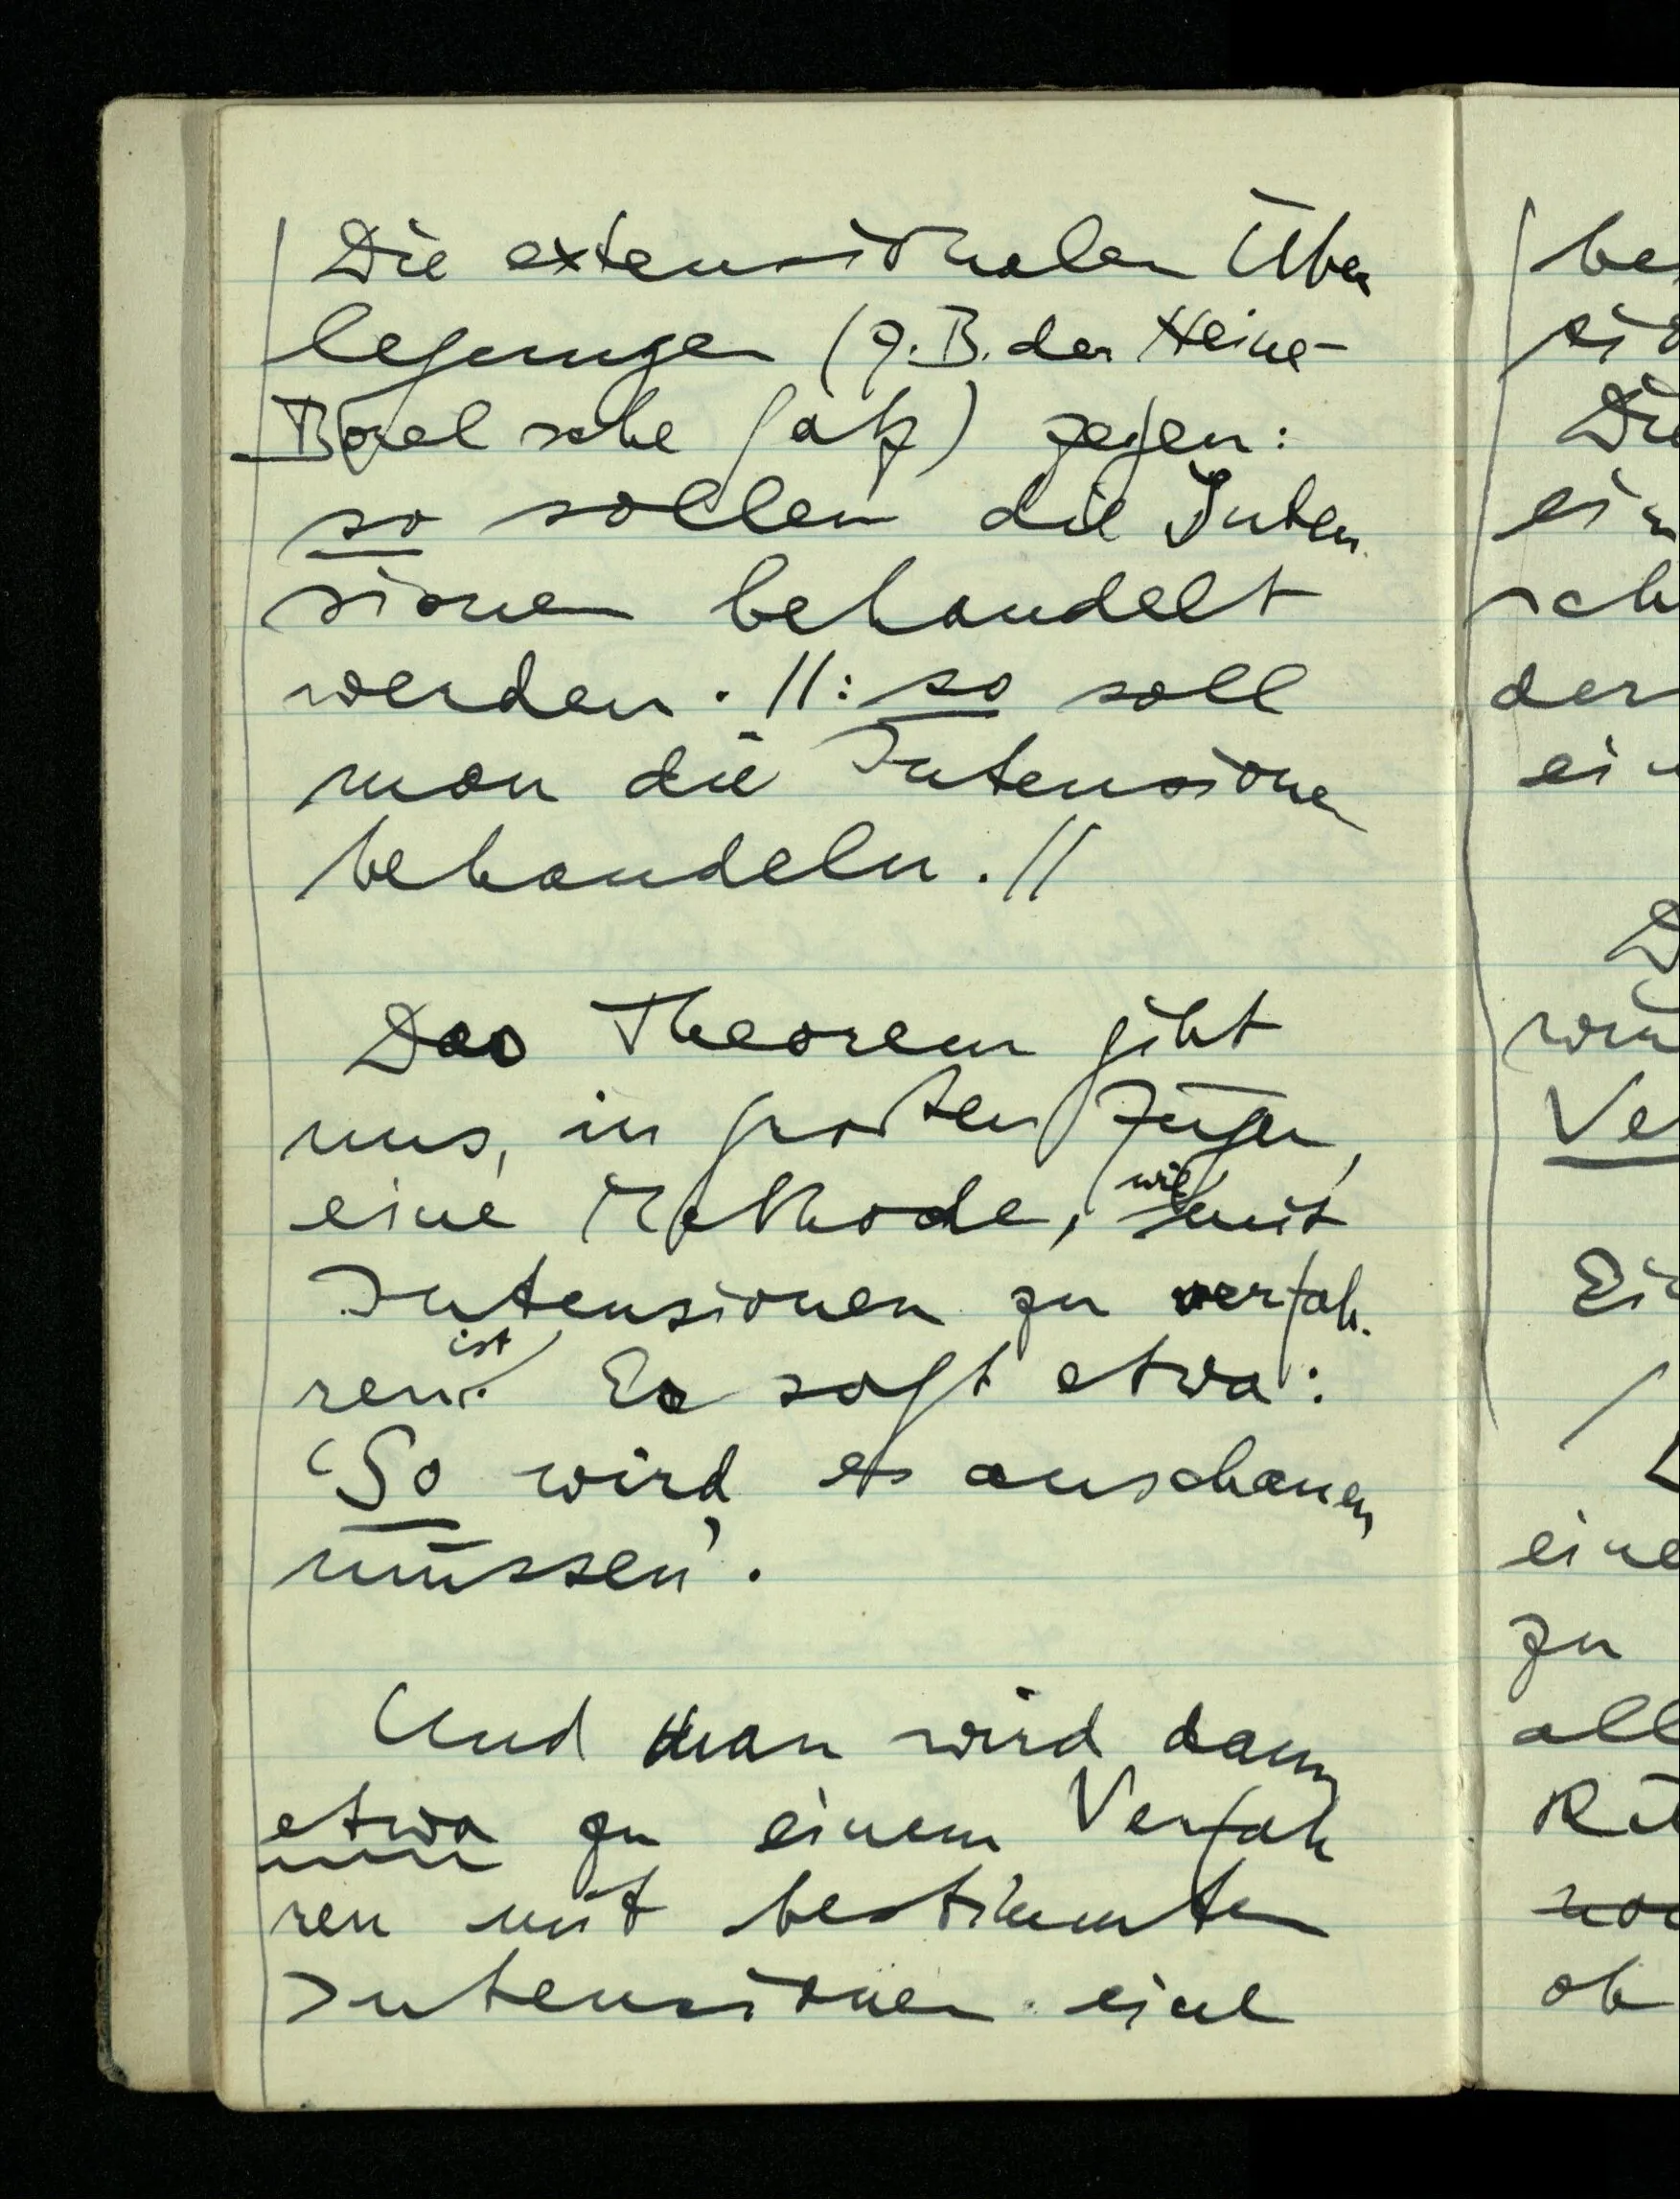 Die extensionalen Über
legungen (z.B. der Heine-
Borel sche Satz) zeigen:
so sollen die Inten
sionen behandelt
werden. //: so soll
man die Intensionen
behandeln. //
Das Theorem gibt
uns, in großen Zügen,
eine Methode, wie mit
Intensionen zu verfah-
ren ist. Es sagt etwa:
‘So wird, es anschauen
müssen’.
Und man wird dann
etwa zu einem Verfah
ren mit bestimmten
Intensionen eine